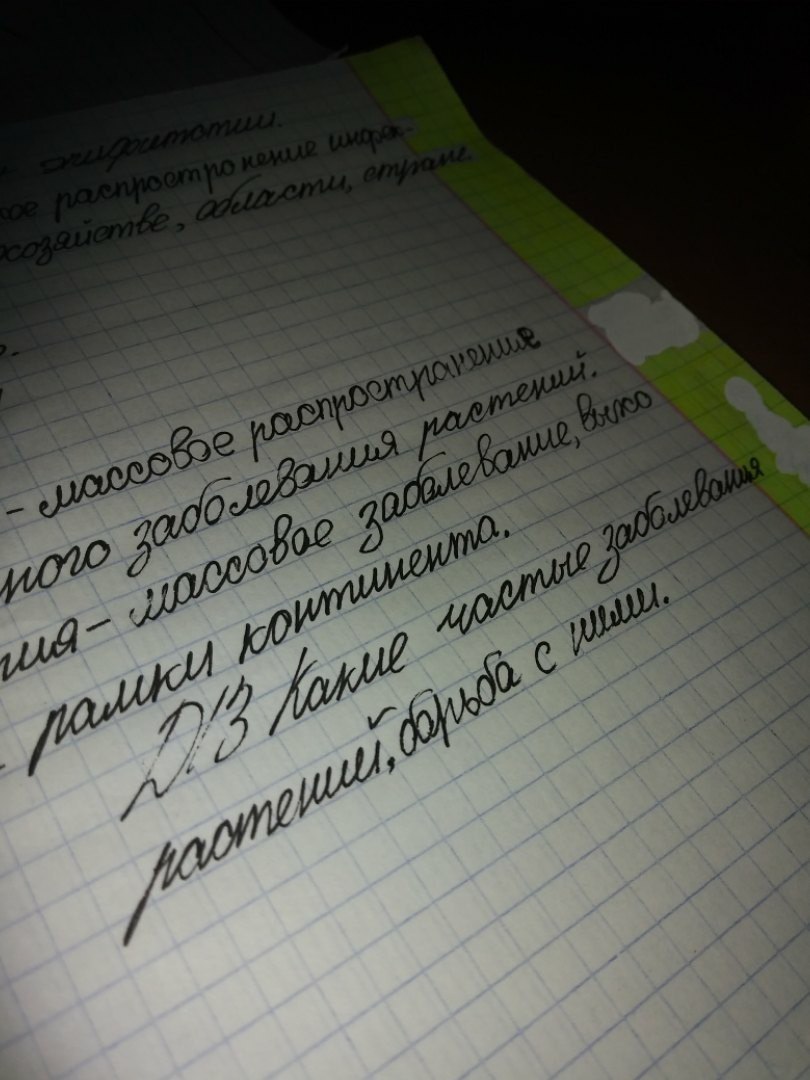 эпифитотии.
ое распространение инфек-
хозяйстве, области, стране.
- массовое распространение
ного заболевания растений.
ия - массовое заболевание, выхо
рамки континента.
Д/З Какие частые заболевания
растений, борьба с ними.